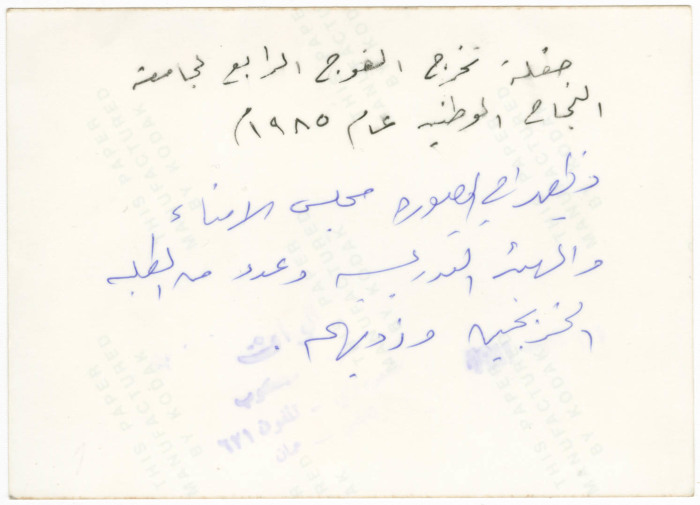 حفلة تخرج الفوج الرابع لجامعة
النجاح الوطنية عام ١٩٨٥م
ويظهر في الصورة مجلس الامناء
والهيئة التدريسية وعدد من الطلبة
الخريجين وذويهم.
تلفون ٦٢١
THIS PAPER
MANUFACTURED
BY KODAK